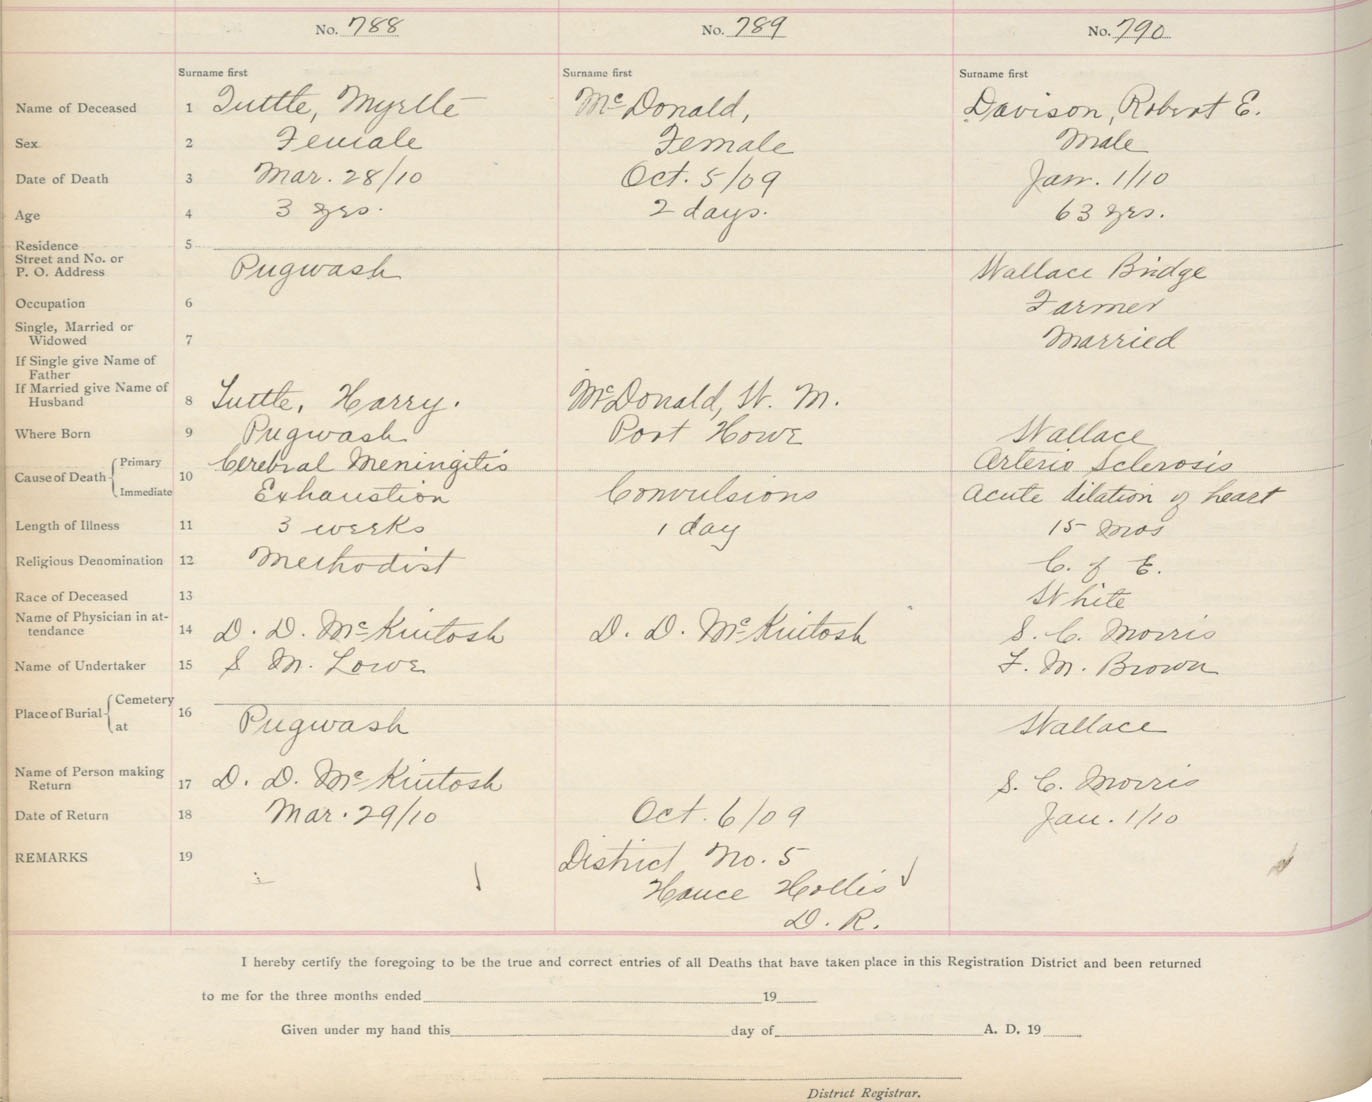 No. 788 No. 789 No. 790
Surname first Surname first Surname first
Name of Deceased 1 Tuttle, Myrtle McDonald, Davison, Robert E.
Sex 2 Female Female Male
Date of Death 3 Mar. 28/10 Oct. 5/09 Jan. 1/10
Age 4 3 yrs. 2 days. 63 yrs.
Residence 5
Street and No. or
P. O. Address Pugwash Wallace Bridge
Occupation 6 Farmer
Single, Married or
Widowed 7 Married
If Single give Name of
Father
If Married give Name of
Husband 8 Tuttle, Harry. McDonald, W. M.
Where Born 9 Pugwash Port Howe Wallace
Cause of Death Primary 10 Cerebral Meningitis Arterio Sclerosis
Immediate Exhaustion Convulsions Acute dilation of heart
Length of Illness 11 3 weeks 1 day 15 mos
Religious Denomination 12 Methodist C. of E.
Race of Deceased 13 White
Name of Physician in at-
tendance 14 D. D. McKintosh D. D. McKintosh S. C. Morris
Name of Undertaker 15 S M. Lowe F. M. Brown
Place of Burial Cemetery 16
at Pugwash Wallace
Name of Person making
Return 17 D. D. McKintosh S. C. Morris
Date of Return 18 Mar. 29/10 Oct. 6/09 Jan. 1/10
REMARKS 19 District No. 5
Hance Hollis
D. R.
I hereby certify the foregoing to be the true and correct entries of all Deaths that have taken place in this Registration District and been returned
to me for the three months ended 19
Given under my hand this day of A. D. 19
District Registrar.